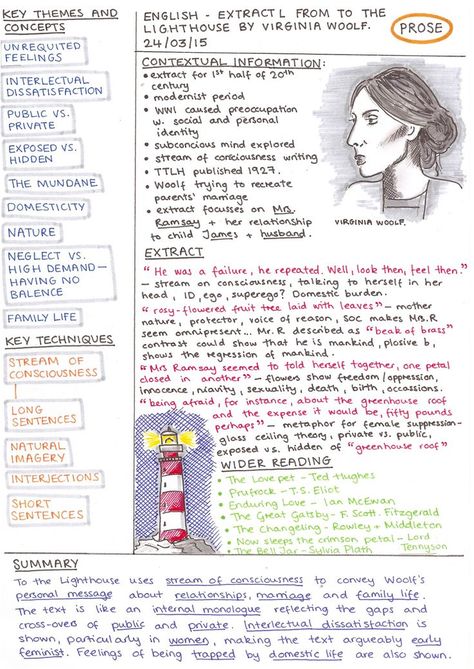 KEY THEMES AND
CONCEPTS
UNREQUITED
FEELINGS
INTERLECTUAL
DISSATIFACTION
PUBLIC VS.
PRIVATE
EXPOSED VS.
HIDDEN
THE MUNDANE
DOMESTICITY
NATURE
NEGLECT VS.
HIGH DEMAND—
HAVING NO
BALENCE
FAMILY LIFE
KEY TECHNIQUES
STREAM OF
CONSCIOUSNESS
LONG
SENTENCES
NATURAL
IMAGERY
INTERJECTIONS
SHORT
SENTENCES
ENGLISH - EXTRACT L FROM TO THE
LIGHTHOUSE BY VIRGINIA WOOLF.
24/03/15
PROSE
CONTEXTUAL INFORMATION:
• extract for 1st half of 20th
century
• modernist period
• WWI caused preoccupation
w. social and personal
identity
• subconcious mind explored
• stream of conciousness writing
• TTLH published 1927.
• Woolf trying to recreate
parents' marriage
• extract focusses on Mrs.
Ramsay + her relationship
to child James + husband.
VIRGINIA WOOLF.
EXTRACT
"He was a failure, he repeated. Well, look then, feel then."
— stream on consciousness, talking to herself in her
head, ID, ego, superego? Domestic burden.
"rosy-flowered fruit tree laid with leaves" — mother
nature, protector, voice of reason, SOC makes Mrs.R
seem omnipresent... Mr.R described as "beak of brass"
contrast could show that he is mankind, plosive b,
shows the regression of mankind.
"Mrs Ramsay seemed to fold herself together, one petal
closed in another" — flowers show freedom/oppression,
innocence, niavity, sexuality, death, birth, occassions.
"being afraid, for instance, about the greenhouse roof
and the expense it would be, fifty pounds
perhaps" — metaphor for female suppression-
glass ceiling theory, private vs. public,
exposed vs. hidden of "greenhouse roof"
WIDER READING
• The Lovepet - Ted Hughes
• Prufrock - T.S. Eliot
• Enduring Love - Ian McEwan
• The Great Gatsby - F. Scott. Fitzgerald
• The Changeling - Rowley + Middleton
• Now sleeps the crimson petal - Lord
Tennyson
• The Bell Jar - Sylvia Plath
SUMMARY
To the Lighthouse uses stream of consciousness to convey Woolf's
personal message about relationships, marriage and family life.
The text is like an internal monologue reflecting the gaps and
cross-overs of public and private. Interlectual dissatisfaction is
shown, particularly in women, making the text argueably early
feminist. Feelings of being trapped by domestic life are also shown.